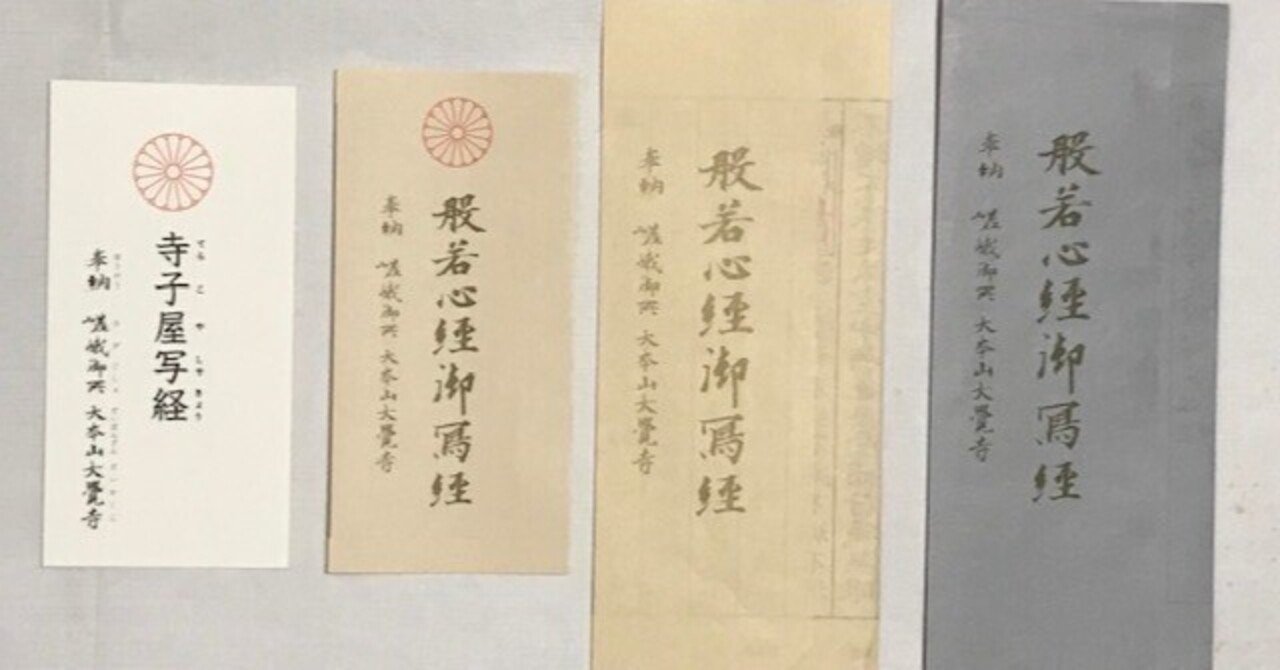 寺子屋写経
てら こ や しゃ きょう
奉納 嵯峨御所 大本山大覺寺
般若心経御寫経
奉納 嵯峨御所 大本山大覺寺
般若心経御寫経
奉納 嵯峨御所 大本山大覺寺
般若心経御寫経
奉納 嵯峨御所 大本山大覺寺